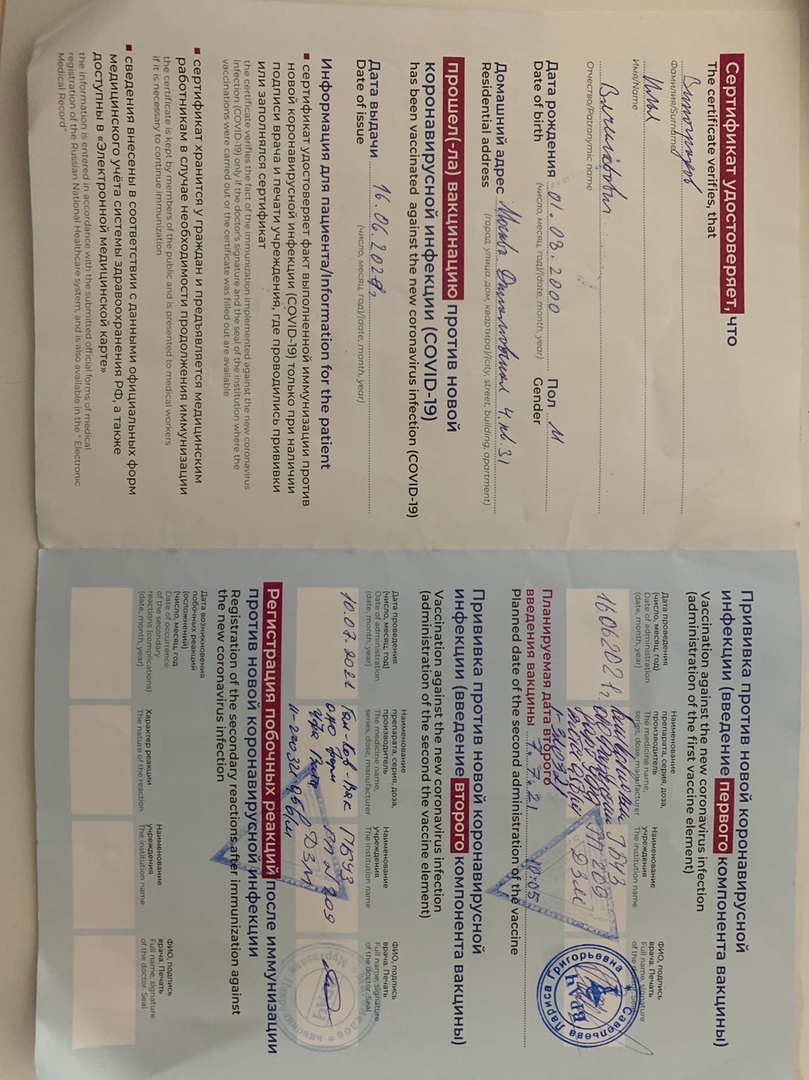 Сертификат удостоверяет, что
The certificate verifies, that
Фамилия/Surname
Илья
Имя/Name
Отчество/Patronymic name
Дата рождения 01.03.2000 Пол М
Date of birth (число, месяц, год)/(date, month, year) Gender
Домашний адрес Москва 4, кв. 31
Residential address (город, улица, дом, квартира)/(city, street, building, apartment)
прошел(-ла) вакцинацию против новой
коронавирусной инфекции (COVID-19)
has been vaccinated against the new coronavirus infection (COVID-19)
Дата выдачи 16.06.2021г.
Date of issue (число, месяц, год)/(date, month, year)
Информация для пациента/Information for the patient
сертификат удостоверяет факт выполненной иммунизации против
новой коронавирусной инфекции (COVID-19) только при наличии
подписи врача и печати учреждения, где проводились прививки
или заполнялся сертификат
the certificate verifies the fact of the immunization implemented against the new coronavirus
infection (COVID-19) only if the doctor's signature and the seal of the institution where the
vaccinations were carried out or the certificate was filled out are available
сертификат хранится у граждан и предъявляется медицинским
работникам в случае необходимости продолжения иммунизации
the certificate is kept by members of the public and is presented to medical workers
if it is necessary to continue immunization
сведения внесены в соответствии с данными официальных форм
медицинского учёта системы здравоохранения РФ, а также
доступны в «Электронной медицинской карте»
the information is entered in accordance with the submitted official forms of medical
registration of the Russian National Healthcare system, and is also available in the " Electronic
Medical Record"
Прививка против новой коронавирусной
инфекции (введение первого компонента вакцины)
Vaccination against the new coronavirus infection
(administration of the first vaccine element)
Дата проведения
(число, месяц, год)
Date of administration
(date, month, year)
Наименование
препарата, серия, доза,
производитель
The medicine name,
series, dose, manufacturer
Наименование
учреждения
The institution name
ФИО, подпись
врача. Печать
Full name, signature
of the doctor. Seal
16.06.2021г.
ГБУЗ
ГП 209
ДЗМ
Савельева Лариса Григорьевна
ВРАЧ
Планируемая дата второго
введения вакцины 7.7.21 10:05
Planned date of the second administration of the vaccine
Прививка против новой коронавирусной
инфекции (введение второго компонента вакцины)
Vaccination against the new coronavirus infection
(administration of the second the vaccine element)
Дата проведения
(число, месяц, год)
Date of administration
(date, month, year)
Наименование
препарата, серия, доза,
производитель
The medicine name,
series, dose, manufacturer
Наименование
учреждения
The institution name
ФИО, подпись
врача. Печать
Full name, signature
of the doctor. Seal
10.07.2021
Гам-Ков-Вак
ГБУЗ
ГП N 209
ДЗМ
Регистрация побочных реакций после иммунизации
против новой коронавирусной инфекции
Registration of the secondary reactions after immunization against
the new coronavirus infection
Дата возникновения
побочных реакций
(осложнений)
(число, месяц, год)
Date of occurrence
of the secondary
reactions (complications)
(date, month, year)
Характер реакции
The nature of the reaction
Наименование
учреждения
The institution name
ФИО, подпись
врача. Печать
Full name, signature
of the doctor. Seal